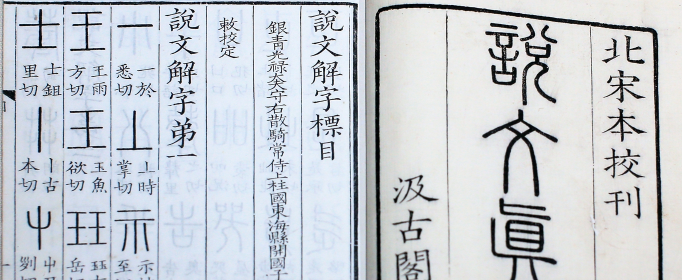 北宋本挍刊
說文眞
汲古閣
說文解字標目
銀青光祿大夫守右散騎常侍上柱國東海縣開國子
敕挍定
說文解字弟一
一於悉切 丄 丄時掌切 示 示
王 王雨方切 王 玉魚欲切 玨
士 士鉏里切 丨 丨古本切 屮